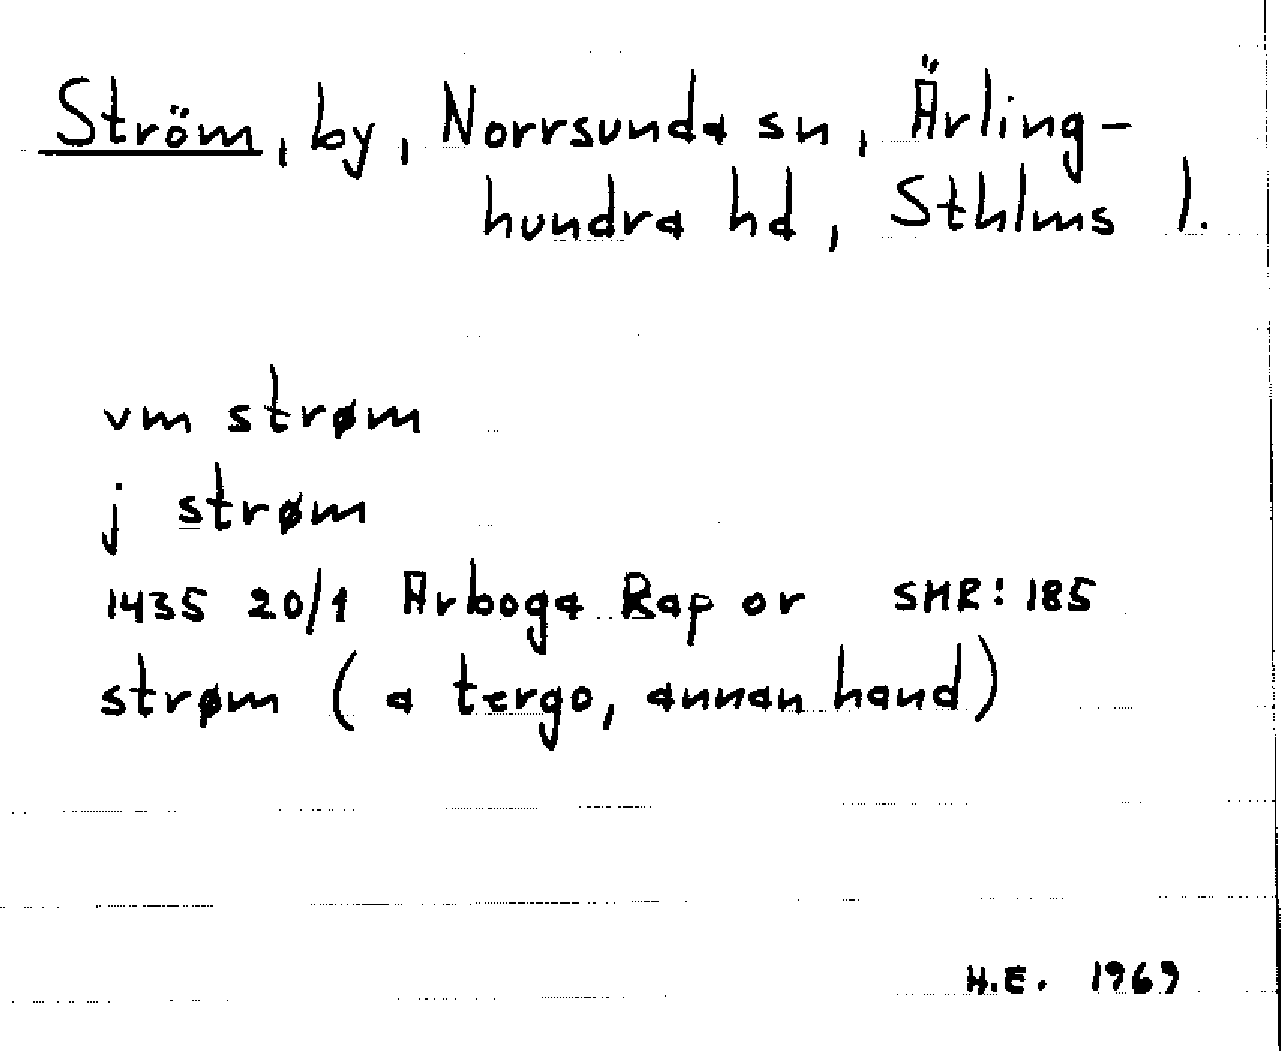 Ström, by, Norrsunda sn, Ärling-
hundra hd, Sthlms l.
vm strøm
j strøm
1435 20/1 Arboga Rap or SMR: 185
strøm (a tergo, annan hand)
H.E. 1969